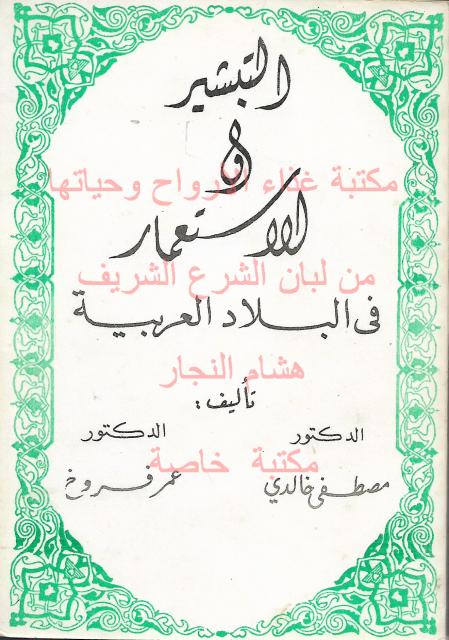 التبشير
و
مكتبة غذاء الأرواح وحياتها
الاستعمار
من لبان الشرع الشريف
فى البلاد العربية
هشام النجار
تأليف :
الدكتور الدكتور
مكتبة خاصة
مصطفى خالدي عمر فروخ